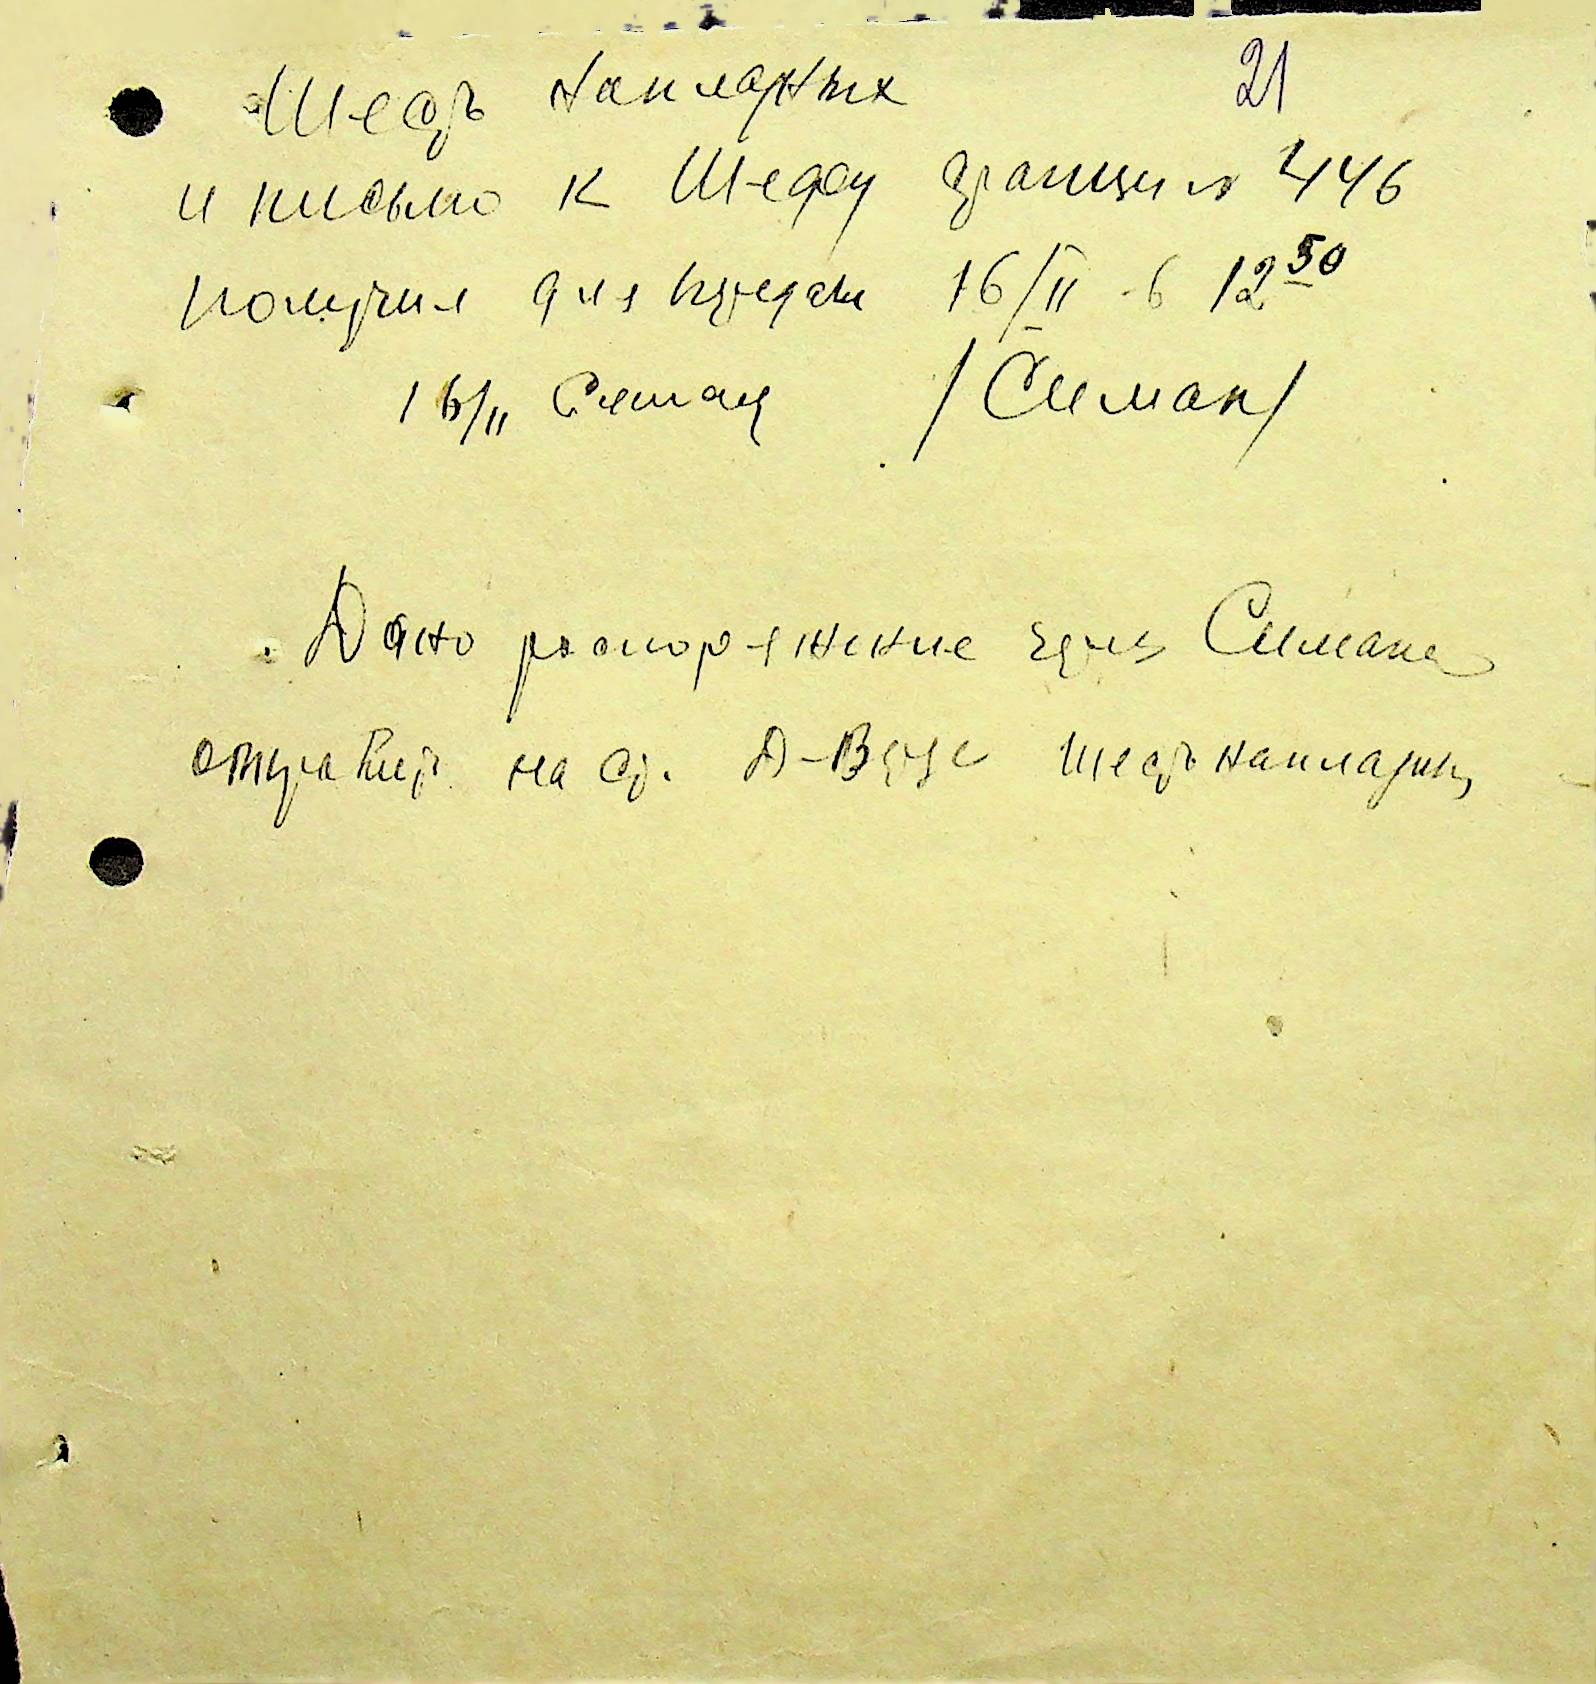 21
Шесть накладных
и письмо к Шефу границы № 446
получил для передачи 16/II в 12 50
16/II Симан /Симан/
Дано распоряжение через Симана
отправить на ст. шесть накладных